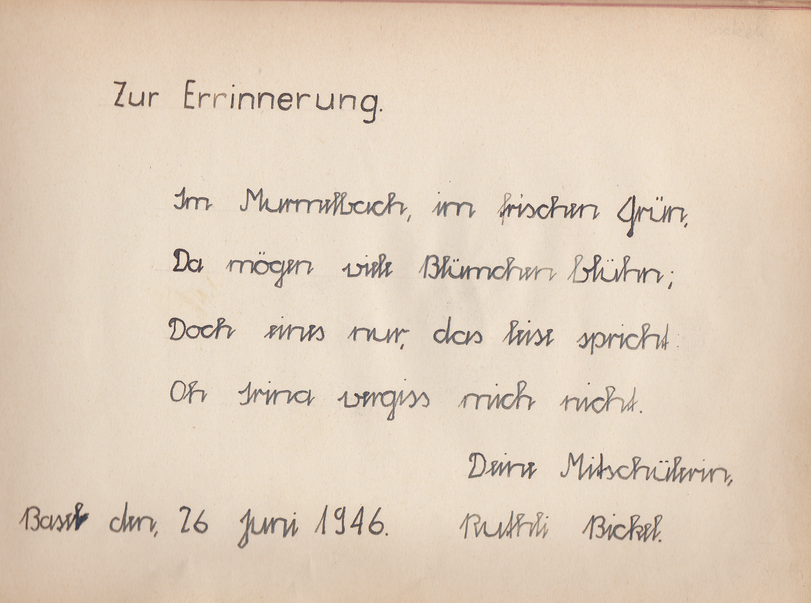 Zur Errinnerung.
Im Murmelbach, im frischen Grün,
Da mögen viele Blümchen blühn;
Doch eines nur, das leise spricht:
Oh Irina vergiss mich nicht.
Deine Mitschülerin,
Basel den, 26 Juni 1946. Ruthli Bickel.